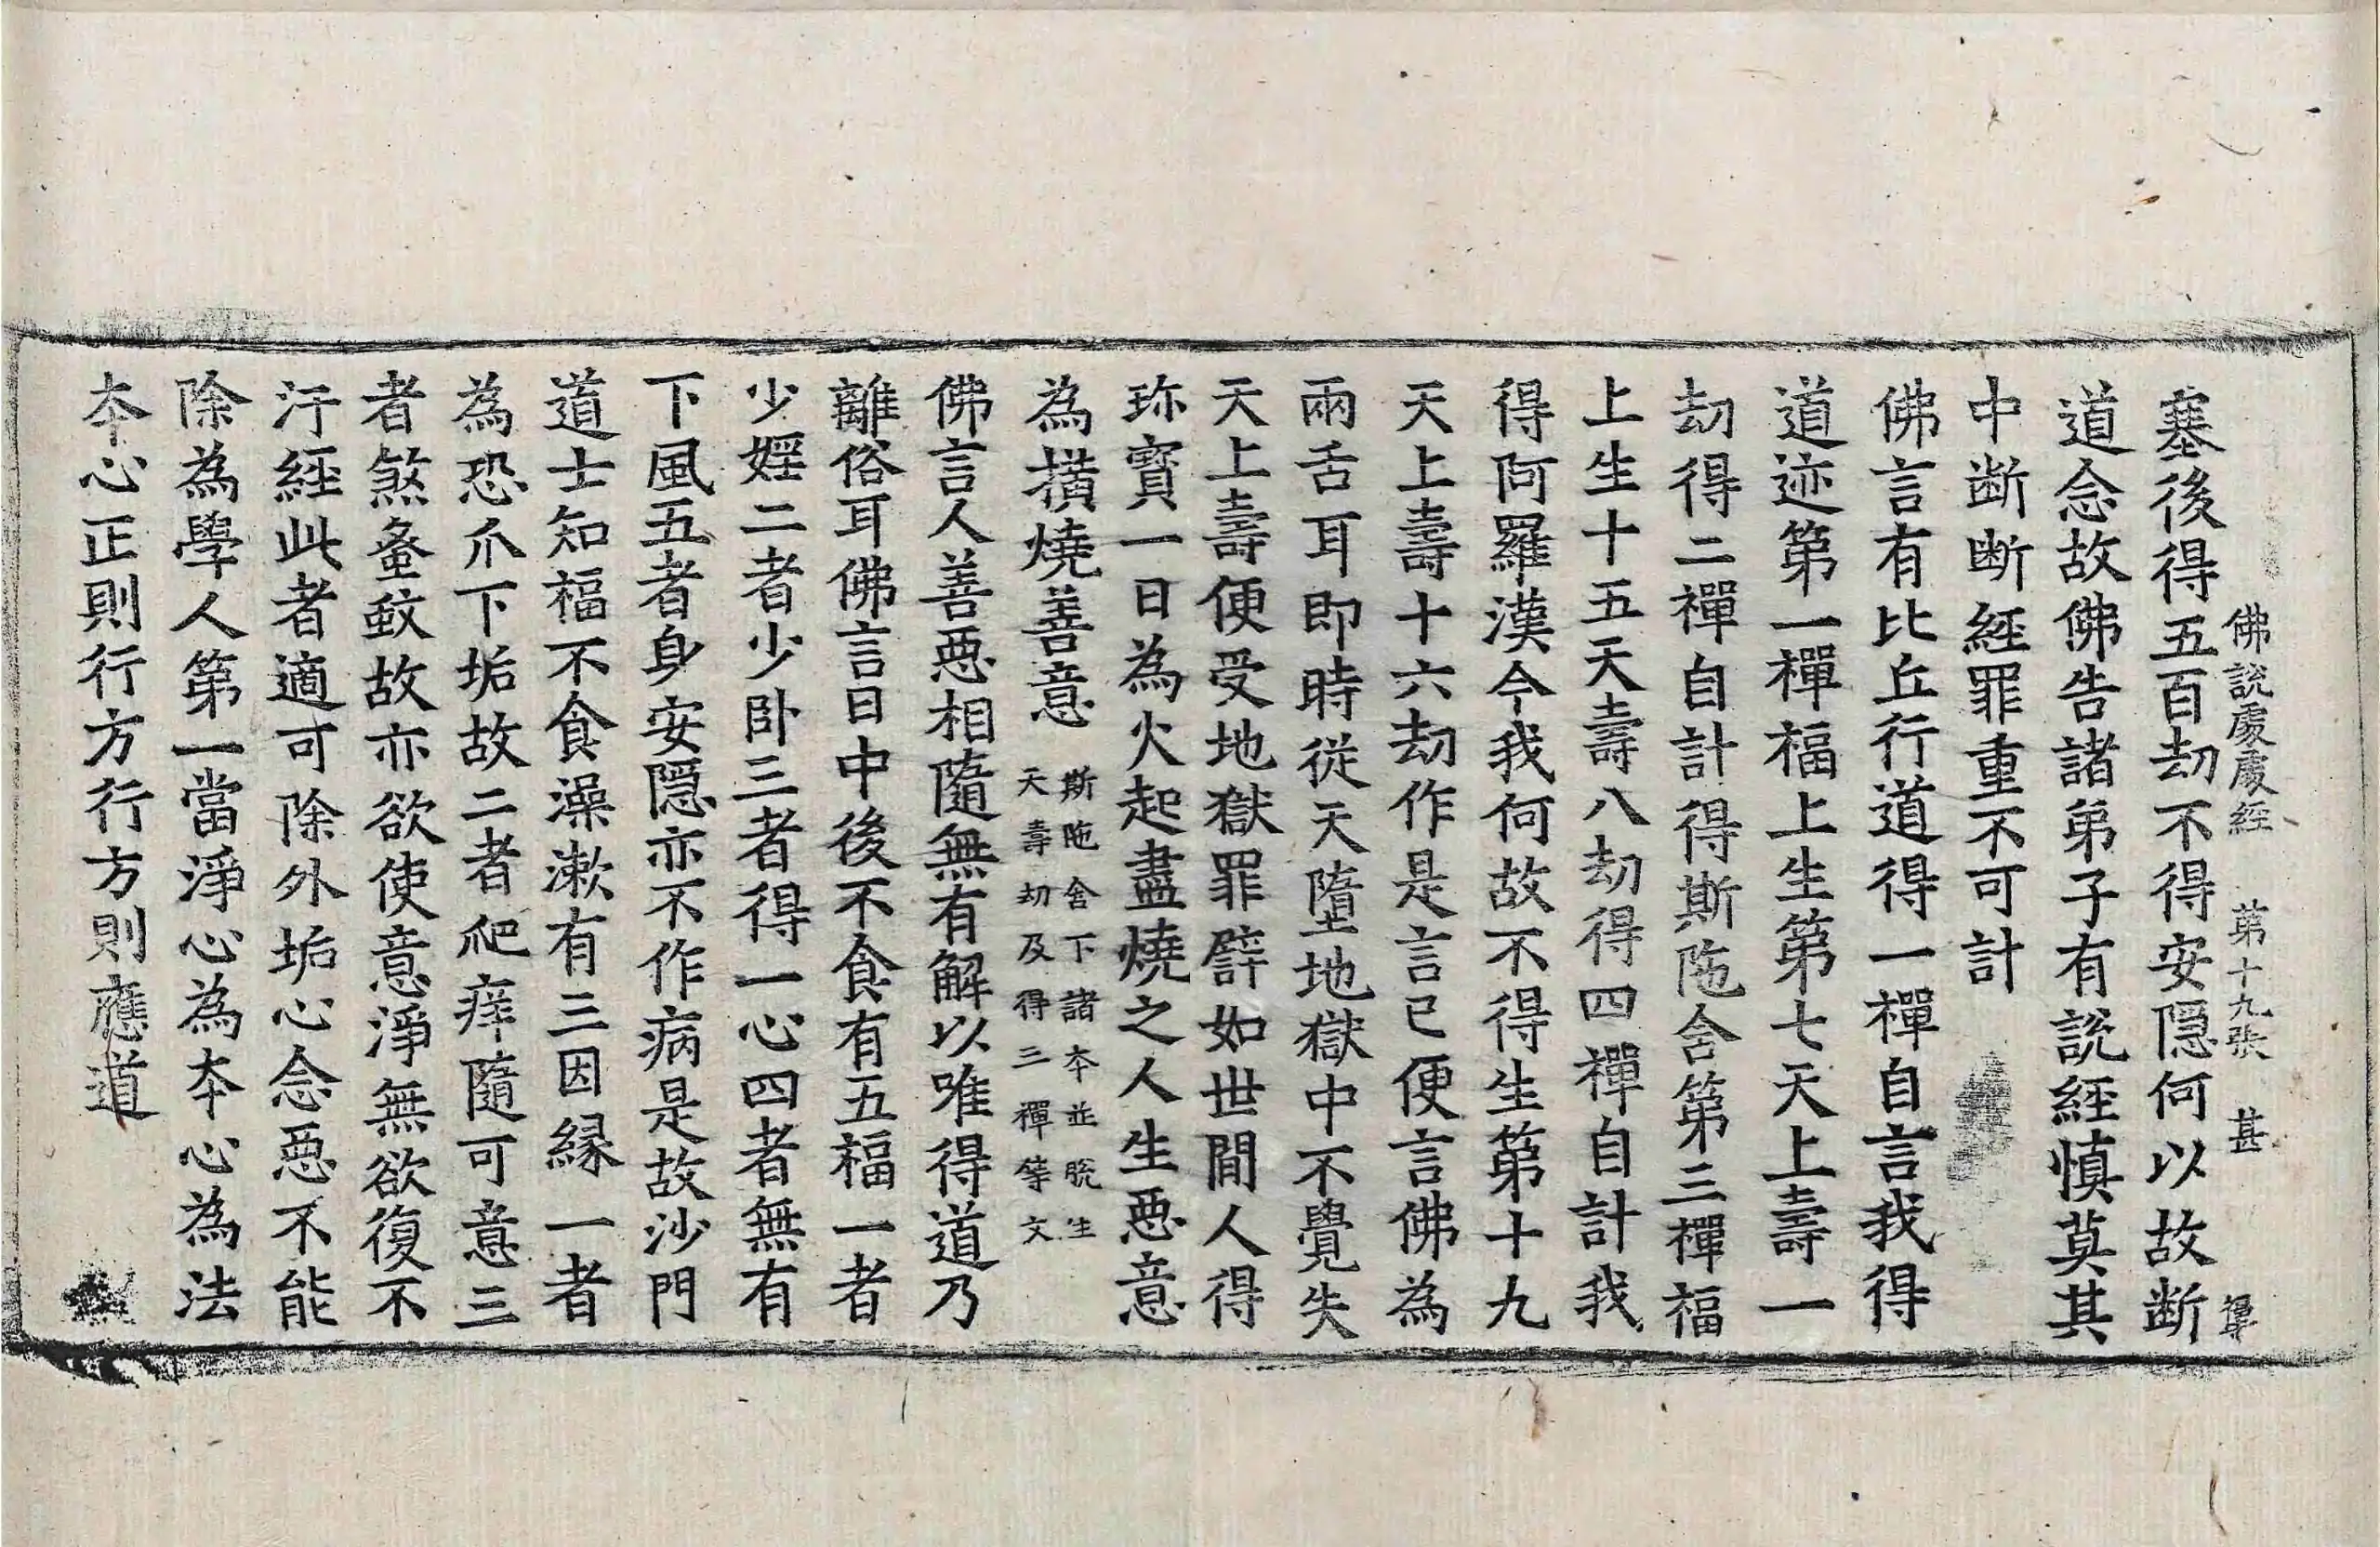 佛說處處經　第十九張　甚
塞後得五百劫不得安隱何以故断
道念故佛告諸弟子有說經慎莫其
中断断經罪重不可計
佛言有比丘行道得一禪自言我得
道迹第一禪福上生第七天上壽一
劫得二禪自計得斯陁含第三禪福
上生十五天壽八劫得四禪自計我
得阿羅漢今我何故不得生第十九
天上壽十六劫作是言已便言佛為
兩舌耳即時從天墮地獄中不覺失
天上壽便受地獄罪譬如世閒人得
珎寶一日為火起盡燒之人生惡意
為撗燒善意
斯陁含下諸夲並脫生
天壽劫及得三禪等文
佛言人善惡相隨無有解以唯得道乃
離俗耳佛言日中後不食有五福一者
少婬二者少卧三者得一心四者無有
下風五者身安隱亦不作病是故沙門
道士知福不食澡漱有三因緣一者
為恐爪下垢故二者爬痒隨可意三
者煞蚤蚊故亦欲使意淨無欲復不
汙經此者適可除外垢心念惡不能
除為學人第一當淨心為夲心為法
夲心正則行方行方則應道